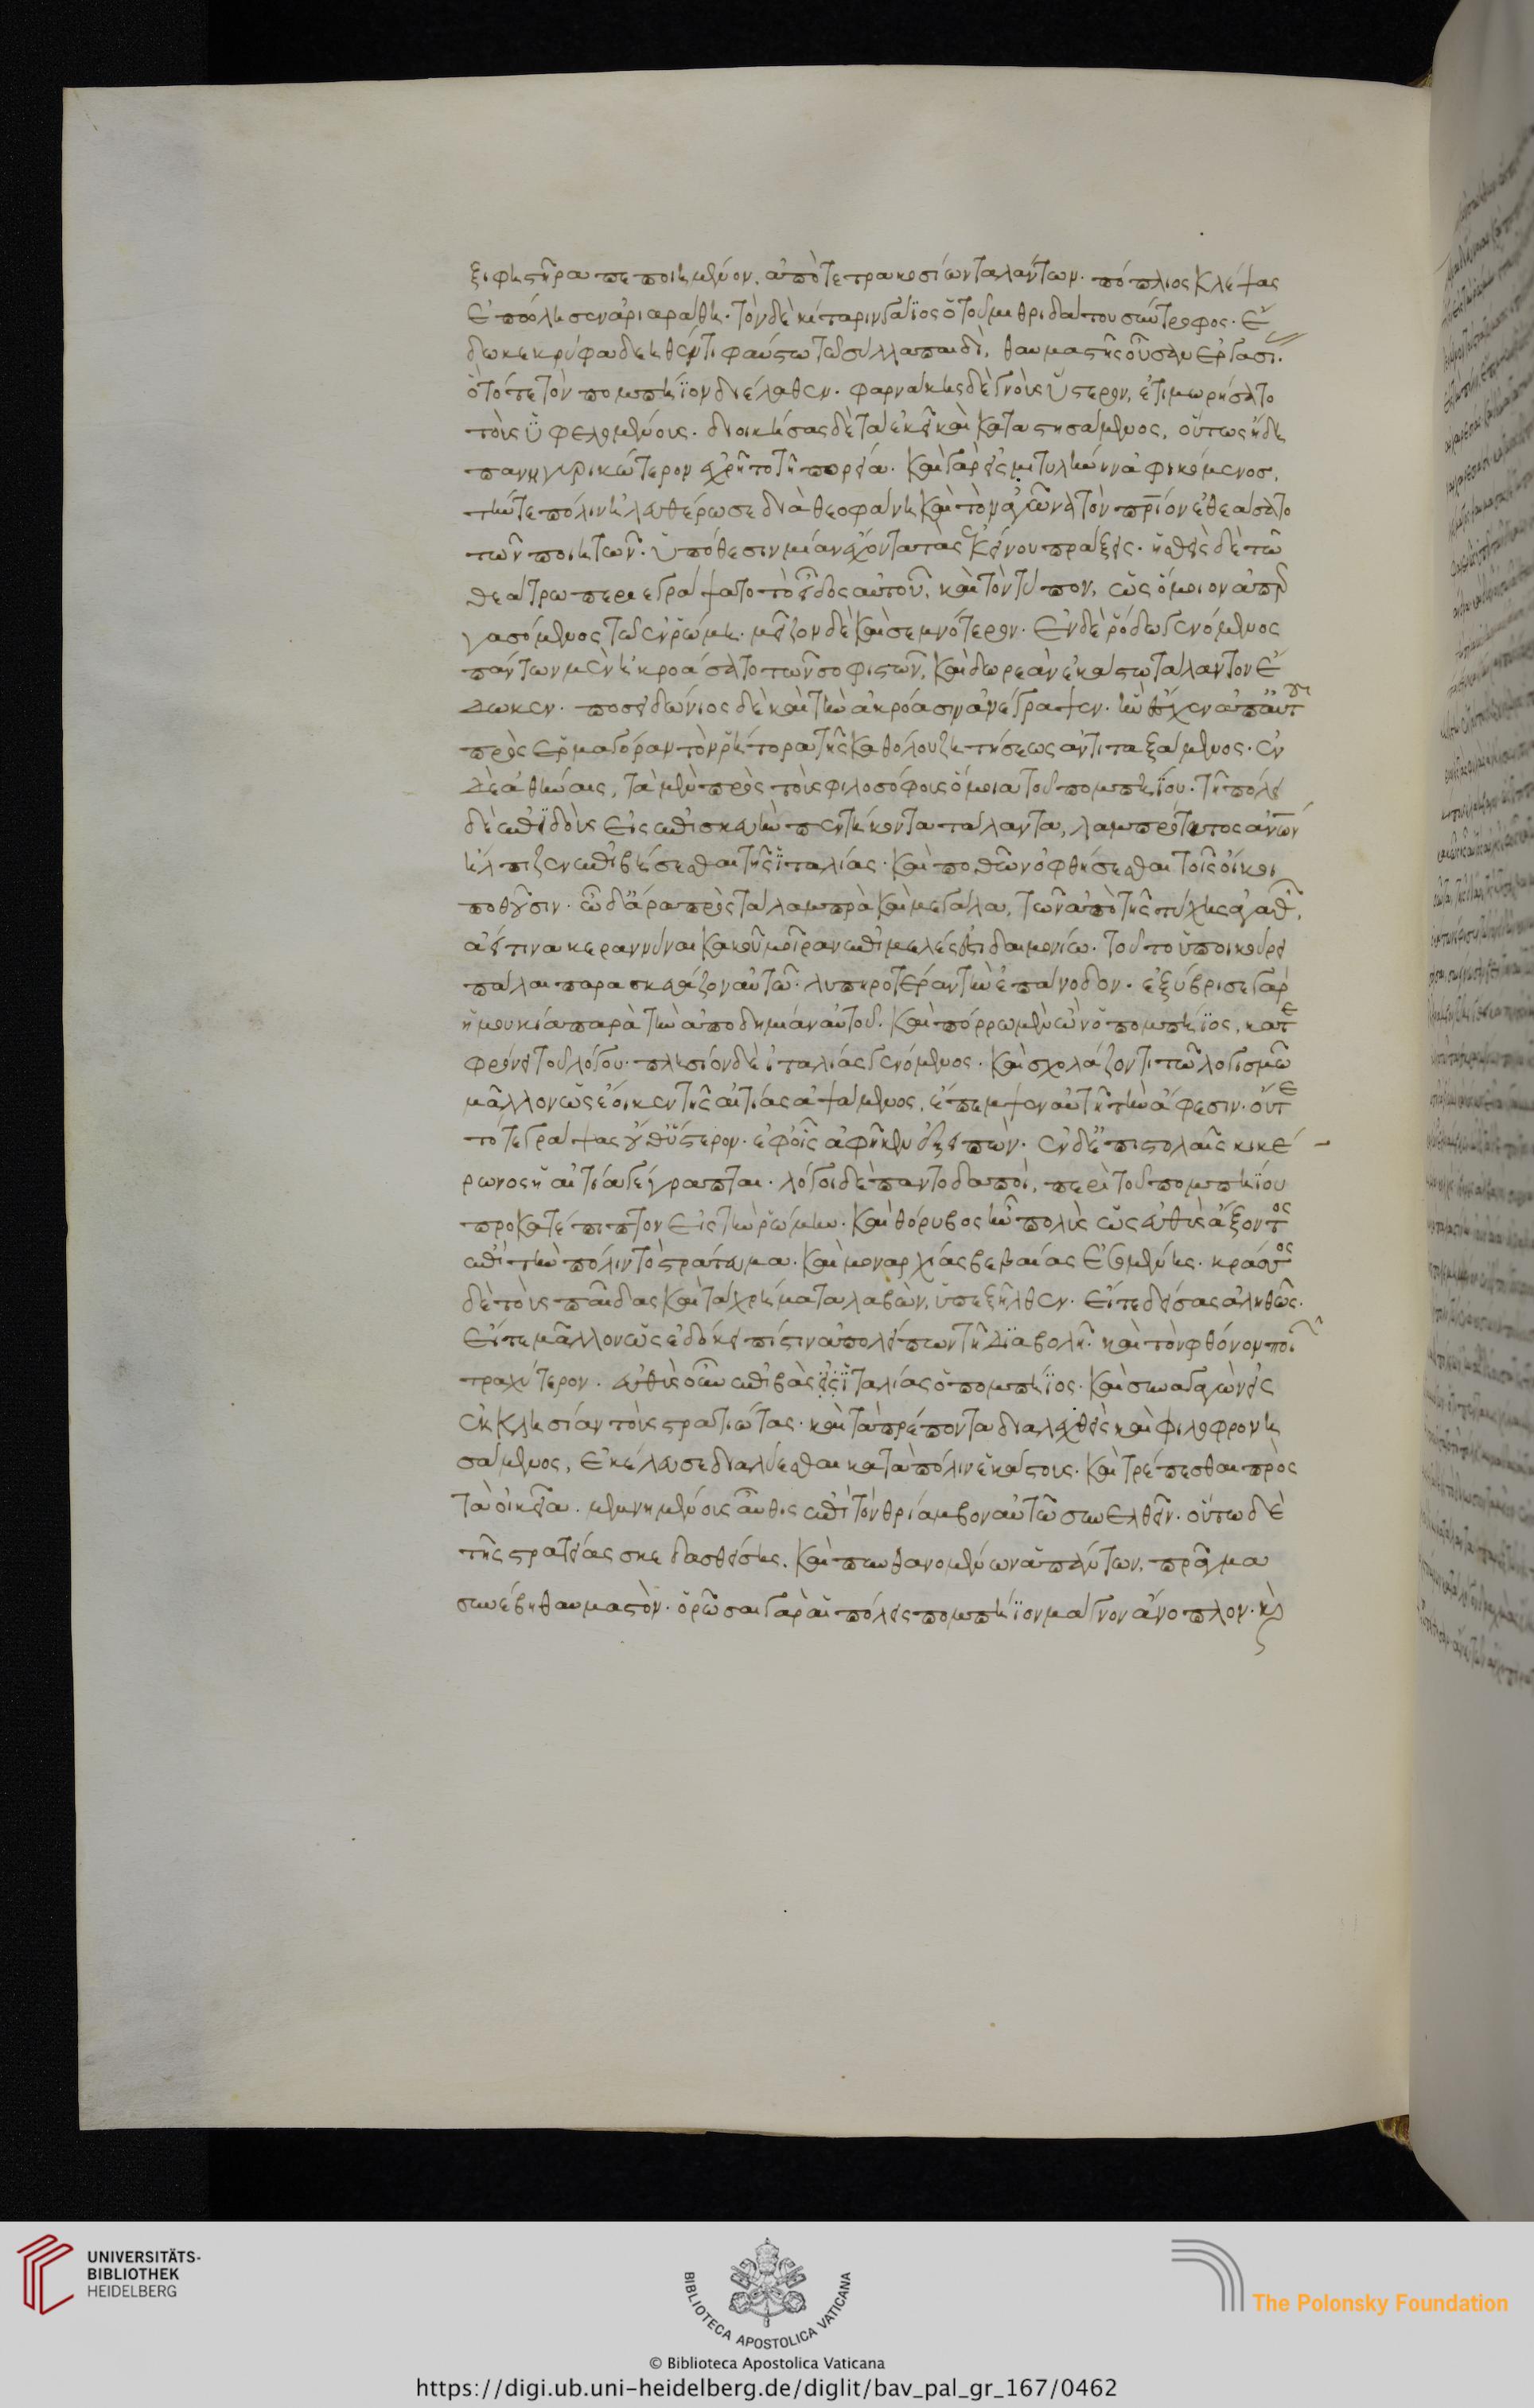 ξιφιστῆρα πεποιημένον. ἀπὸ τετρακοσίων ταλάντων. πόπλιος κλέψας
ἐπώλησεν ἀριαράθη. τὸν δὲ κίταριν γάϊος ὁ τοῦ μιθριδάτου σύντροφος. ἔ
δωκε κρύφα δεηθέντι φαύστω τῶ σύλλα παιδὶ, θαυμαστῆς οὖσαν ἐργασι.
ὃ τότε τὸν πομπήϊον διέλαθεν. φαρνάκης δὲ γνοὺς ὕστερον, ἐτιμωρήσατο
τοὺς ὑφελομένους. διοικήσας δὲ τὰ ἐκεῖ καὶ καταστησάμενος, οὕτως ἤδη
πανηγυρικώτερον ἐχρῆτο τῆ πορεία. καὶ γὰρ εἰς μιτυλήνην ἀφικόμενος,
τήν τε πόλιν ἠλευθέρωσε διὰ θεοφάνη καὶ τὸν ἀγῶνα τὸν πάτριον ἐθεάσατο
τῶν ποιητῶν. ὑπόθεσιν μίαν ἔχοντα τὰς ἐκείνου πράξεις. ἡσθεὶς δὲ τῶ
θεάτρω περιεγράψατο τὸ εἶδος αὐτοῦ, καὶ τὸν τύπον, ὡς ὅμοιον ἀπερ
γασόμενος τῶ ἐν ῥώμη. μεῖζον δὲ καὶ σεμνότερον. ἐν δὲ ῥόδω γενόμενος
πάντων μὲν ἠκροάσατο τῶν σοφιστῶν, καὶ δωρεὰν ἑκάστω τάλαντον ἔ
δωκεν. ποσειδώνιος δὲ καὶ τὴν ἀκρόασιν ἀνέγραψεν. ἣν ἔσχεν ἐπ' αὐτοῦ
πρὸς ἑρμαγόραν τὸν ῥήτορα τῆς καθόλου ζητήσεως ἀντιταξάμενος. ἐν
δὲ ἀθήναις, τὰ μὲν πρὸς τοὺς φιλοσόφους ὅμοια τοῦ πομπηΐου. τῆ πόλει
δὲ ἐπιδοὺς εἰς ἐπισκευὴν πεντήκοντα τάλαντα, λαμπρότατος ἀνθρώπων
ἤλπιζεν ἐπιβήσεσθαι τῆς ἰταλίας. καὶ ποθῶν ὀφθήσεσθαι τοῖς οἴκοι
ποθοῦσιν. ὧ δ' ἄρα πρὸς τὰ λαμπρὰ καὶ μεγάλα, τῶν ἀπὸ τῆς τύχης ἀγαθῶν,
ἀεί τινα κεραννύναι κακοῦ μοῖραν ἐπιμελές ἐστι δαιμονίω. τοῦτο ὑποικούρει
πάλαι παρασκευάζον αὐτῶ. λυπηροτέραν τὴν ἐπάνοδον. ἐξύβρισε γὰρ
ἡ μουκία παρὰ τὴν ἀποδημίαν αὐτοῦ. καὶ πόρρω μὲν ὢν ὁ πομπήϊος, κατε
φρόνει τοῦ λόγου. πλησίον δὲ ἰταλίας γενόμενος. καὶ σχολάζοντι τῶ λογισμῶ
μᾶλλον ὡς ἔοικεν τῆς αἰτίας ἁψάμενος, ἔπεμψεν αὐτῆ τὴν ἄφεσιν. οὔτε
τότε γράψας οὔθ' ὕστερον. ἐφ' οἷς ἀφῆκεν ἐξειπών. ἐν δ' ἐπιστολαῖς κικέ
ρωνος ἡ αἰτία γέγραπται. λόγοι δὲ παντοδαποὶ, περὶ τοῦ πομπηΐου
προκατέπιπτον εἰς τὴν ῥώμην. καὶ θόρυβος ἦν πολὺς ὡς εὐθὺς ἄξοντος
ἐπὶ τὴν πόλιν τὸ στράτευμα. καὶ μοναρχίας βεβαίας ἐσομένης. κράσσος
δὲ τοὺς παῖδας καὶ τὰ χρήματα λαβὼν, ὑπεξῆλθεν. εἴτε δείσας ἀληθῶς.
εἴτε μᾶλλον ὡς ἐδόκει πίστιν ἀπολείπων τῆ διαβολῆ. καὶ τὸν φθόνον ποι
τραχύτερον. εὐθὺς οὖν ἐπιβὰς εἰς ἰταλίας ὁ πομπήϊος. καὶ συναγαγὼν εἰς
ἐκκλησίαν τοὺς στρατιώτας. καὶ τὰ πρέποντα διαλεχθεὶς καὶ φιλοφρονη
σάμενος, ἐκέλευσε διαλύεσθαι κατὰ πόλιν ἑκάστους. καὶ τρέπεσθαι πρὸς
τὰ οἰκεῖα. μεμνημένους αὖθις ἐπὶ τὸν θρίαμβον αὐτῶ συνελθεῖν. οὕτω δὲ
τῆς στρατείας σκεδασθείσης. καὶ πυνθανομένων ἁπάντων, πρᾶγμα
συνέβη θαυμαστόν. ὁρῶσαι γὰρ αἱ πόλεις πομπήϊον μάγνον ἄνοπλον. καὶ
UNIVERSITÄTS-
BIBLIOTHEK
HEIDELBERG
BIBLIOTECA APOSTOLICA VATICANA
The Polonsky Foundation
© Biblioteca Apostolica Vaticana
https://digi.ub.uni-heidelberg.de/diglit/bav_pal_gr_167/0462